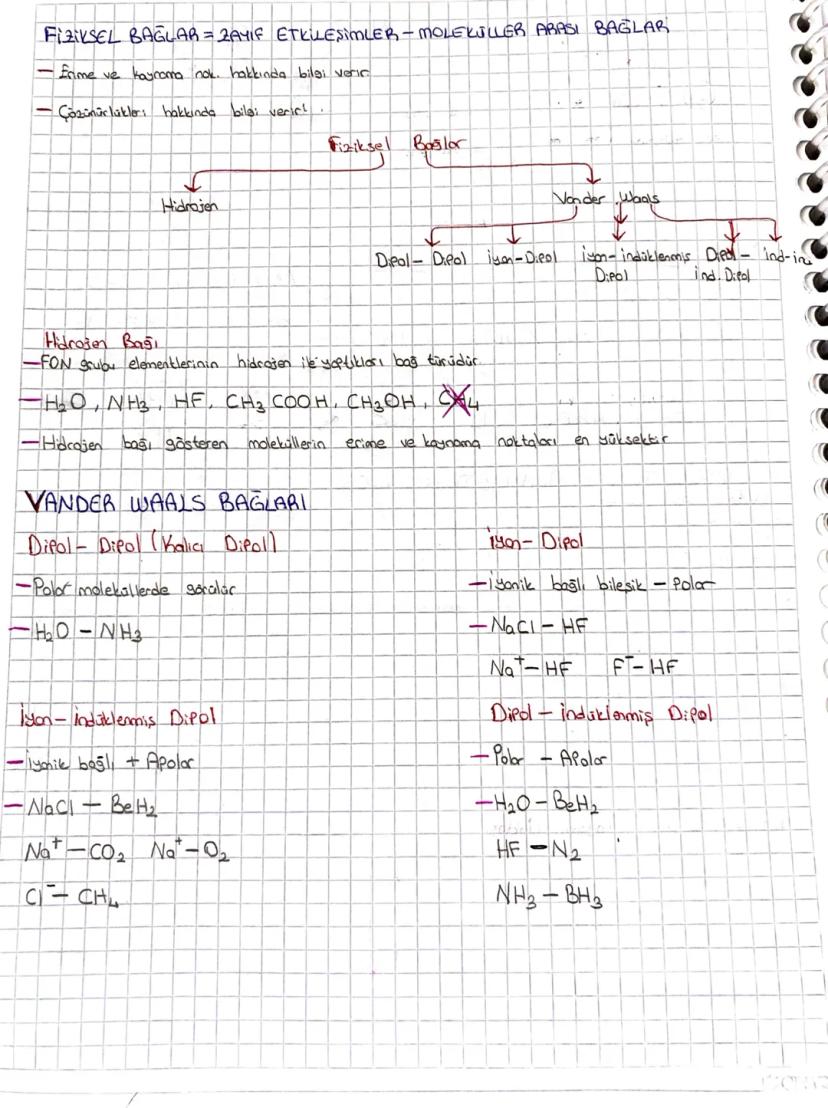 FİZİKSEL BAĞLAR = ZAYIF ETKİLEŞİMLER – MOLEKÜLLER ARASI BAĞLAR
– Erime ve kaynama nok. hakkında bilgi verir
– Çözünürlükleri hakkında bilgi verir!
Fiziksel Bağlar
Hidrojen
Vander Waals
Dipol – Dipol
iyon-Dipol
iyon-indüklenmiş Dipol
Dipol – ind. Dipol
ind-in
Hidrojen Bağı
– FON grubu elementlerinin hidrojen ile yaptıkları bağ türüdür
– H₂O, NH₃, HF, CH₃COOH, CH₃OH, CH₄
– Hidrojen bağı gösteren moleküllerin erime ve kaynama noktaları en yüksektir
VANDER WAALS BAĞLARI
Dipol – Dipol (Kalıcı Dipol)
– Polar moleküllerde görülür
– H₂O – NH₃
iyon – Dipol
– iyonik bağlı bileşik – Polar
– NaCl – HF
Na⁺ – HF F⁻ – HF
İyon – indüklenmiş Dipol
– iyonik bağlı + Apolar
– NaCl – BeH₂
Na⁺ – CO₂ Na⁺ – O₂
Cl⁻ – CH₄
Dipol – indüklenmiş Dipol
– Polar – Apolar
– H₂O – BeH₂
HF – N₂
NH₃ – BH₃